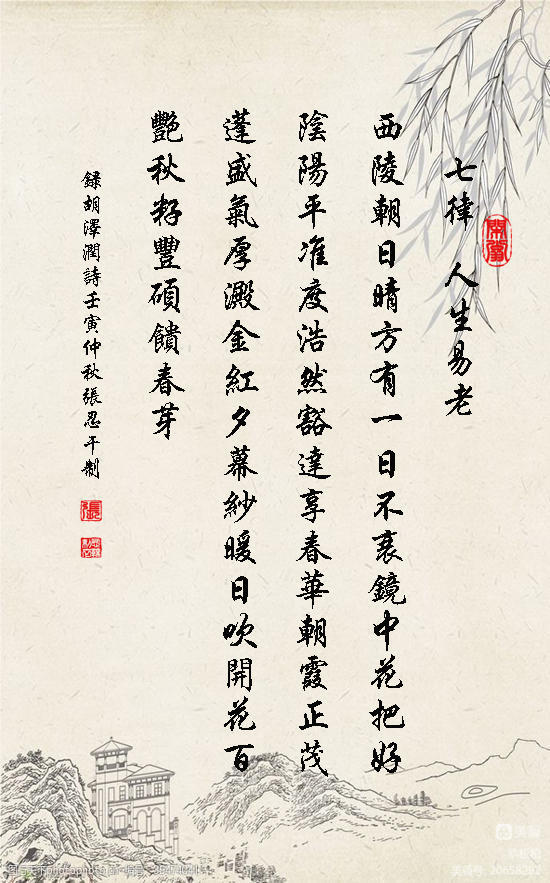 七律 人生易老
西陵朝日晴方有一日不衰鏡中花把好
陰陽平准度浩然豁達享春華朝霞正茂
蓬盛氣厚澱金紅夕幕紗暖日吹開花百
豔秋籽豐碩饋春芽
録胡澤潤詩壬寅仲秋張忍干制
張
美篇